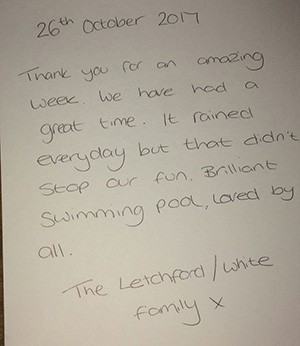 26th October 2017
Thank you for an amazing
week. We have had a
great time. It rained
everyday but that didn't
stop our fun. Brilliant
swimming pool, loved by
all.
The Letchford/white
family x